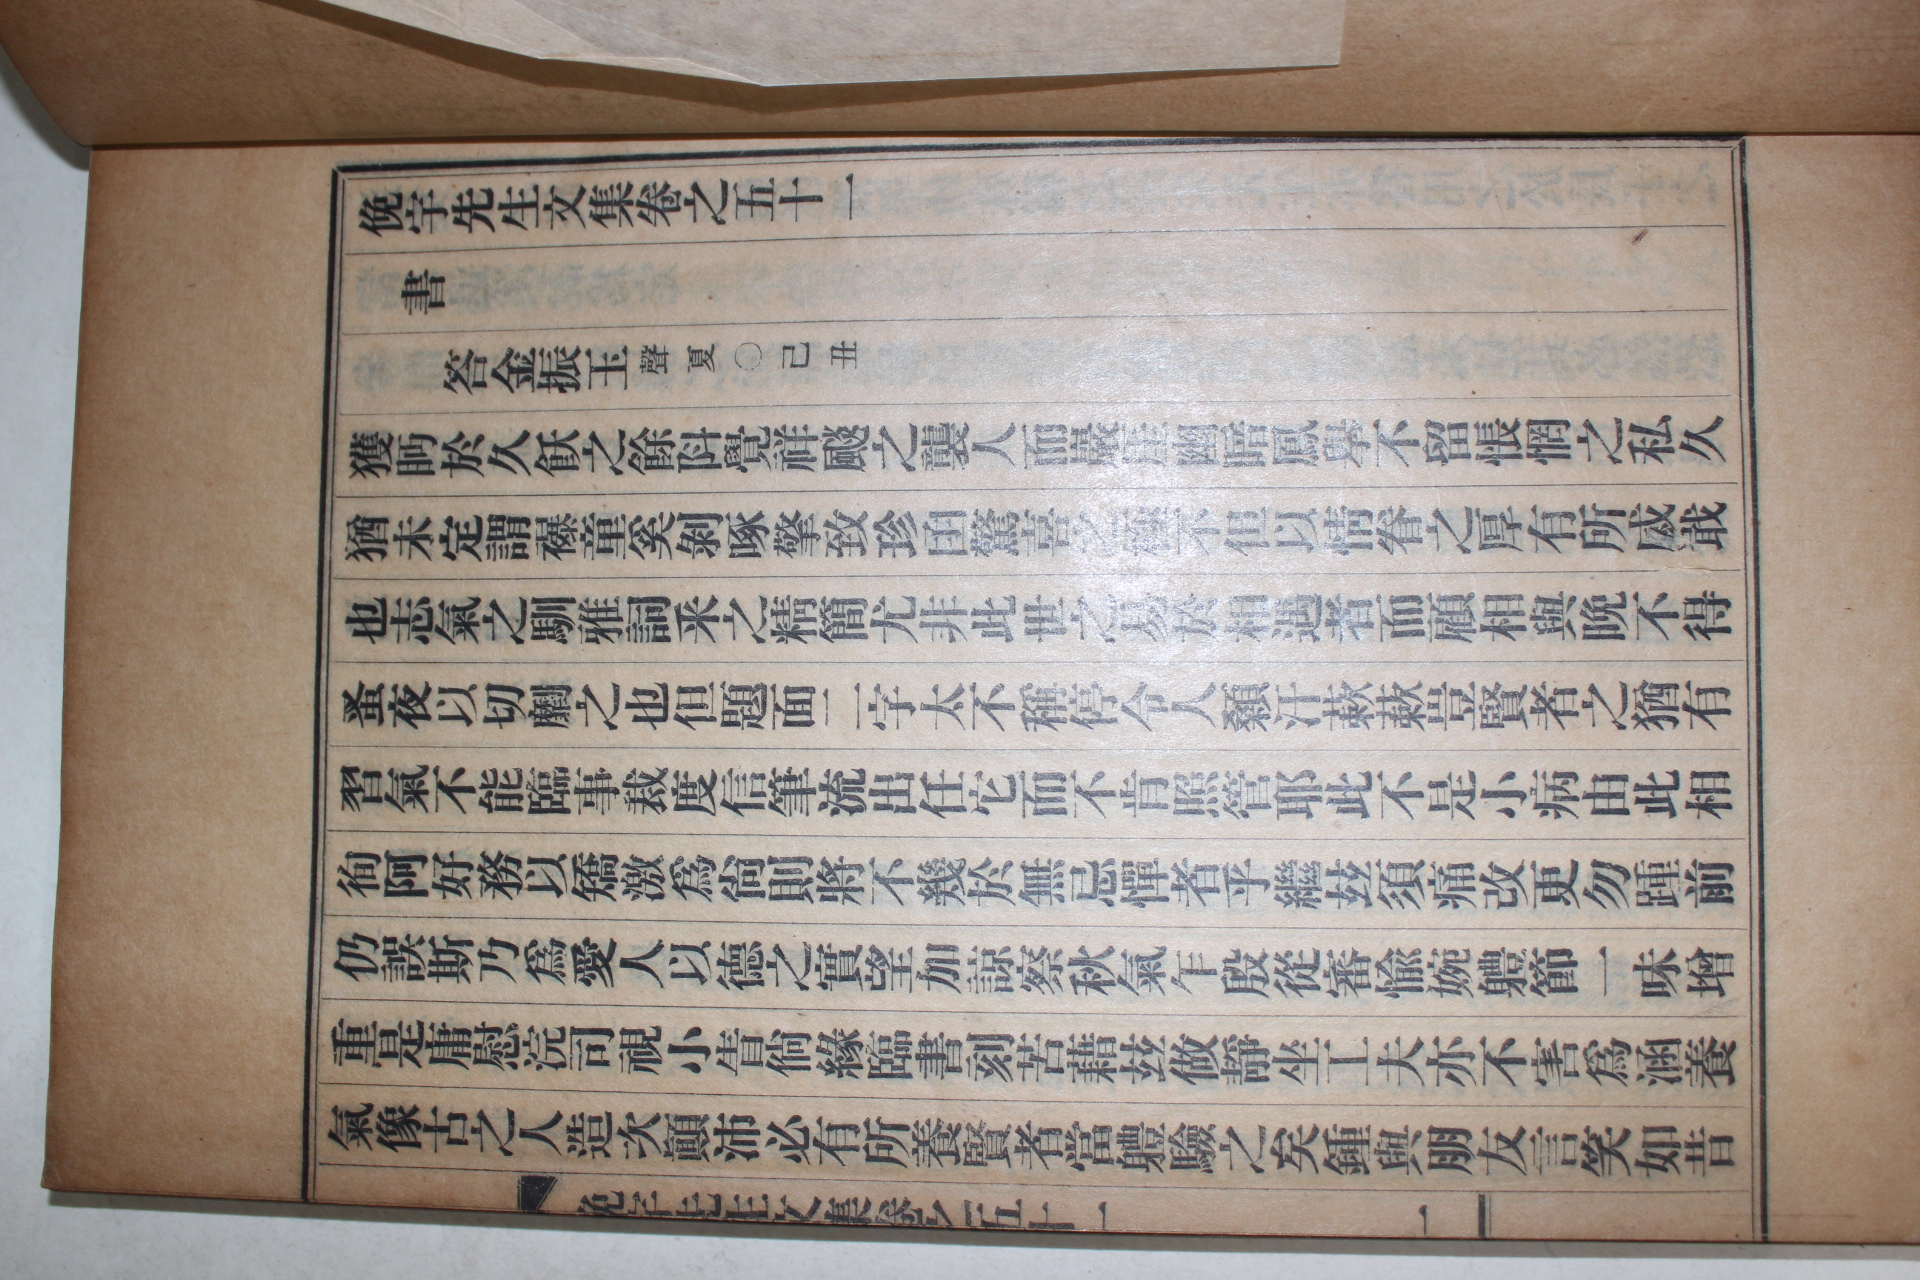 俛宇先生文集卷之五十一
書
答金振玉聲夏〇己丑
獲眄於久飫之餘斗覺祥飈之襲人而巖厓幽晤鳳擧不留悵惘之私久
猶未定謂襮童奚剝啄擎致珍函驚喜之極不但以情眷之厚有所感戢
也志氣之馴雅詞采之精簡尤非此世之易於相遇者而顧相與晩不得
蚤夜以切劘之也但題面二字太不稱停令人顙汗蔌蔌豈賢者之猶有
習氣不能臨事裁度信筆流出任它而不肯照管耶此不是小病由此相
徇阿好務以矯激爲尙則將不幾於無忌憚者乎繼玆須痛改更勿踵前
仍誤斯乃爲愛人以德之實望加諒察秋氣乍殷從審愉婉軆節一味增
重是庸慰浣司視小眚倘緣臨書刻苦藉玆做靜坐工夫亦不害爲涵養
氣像古之人造次顚沛必有所養賢者當軆驗之矣鍾與朋友言笑如昔
俛宇先生文集卷之五十一
一